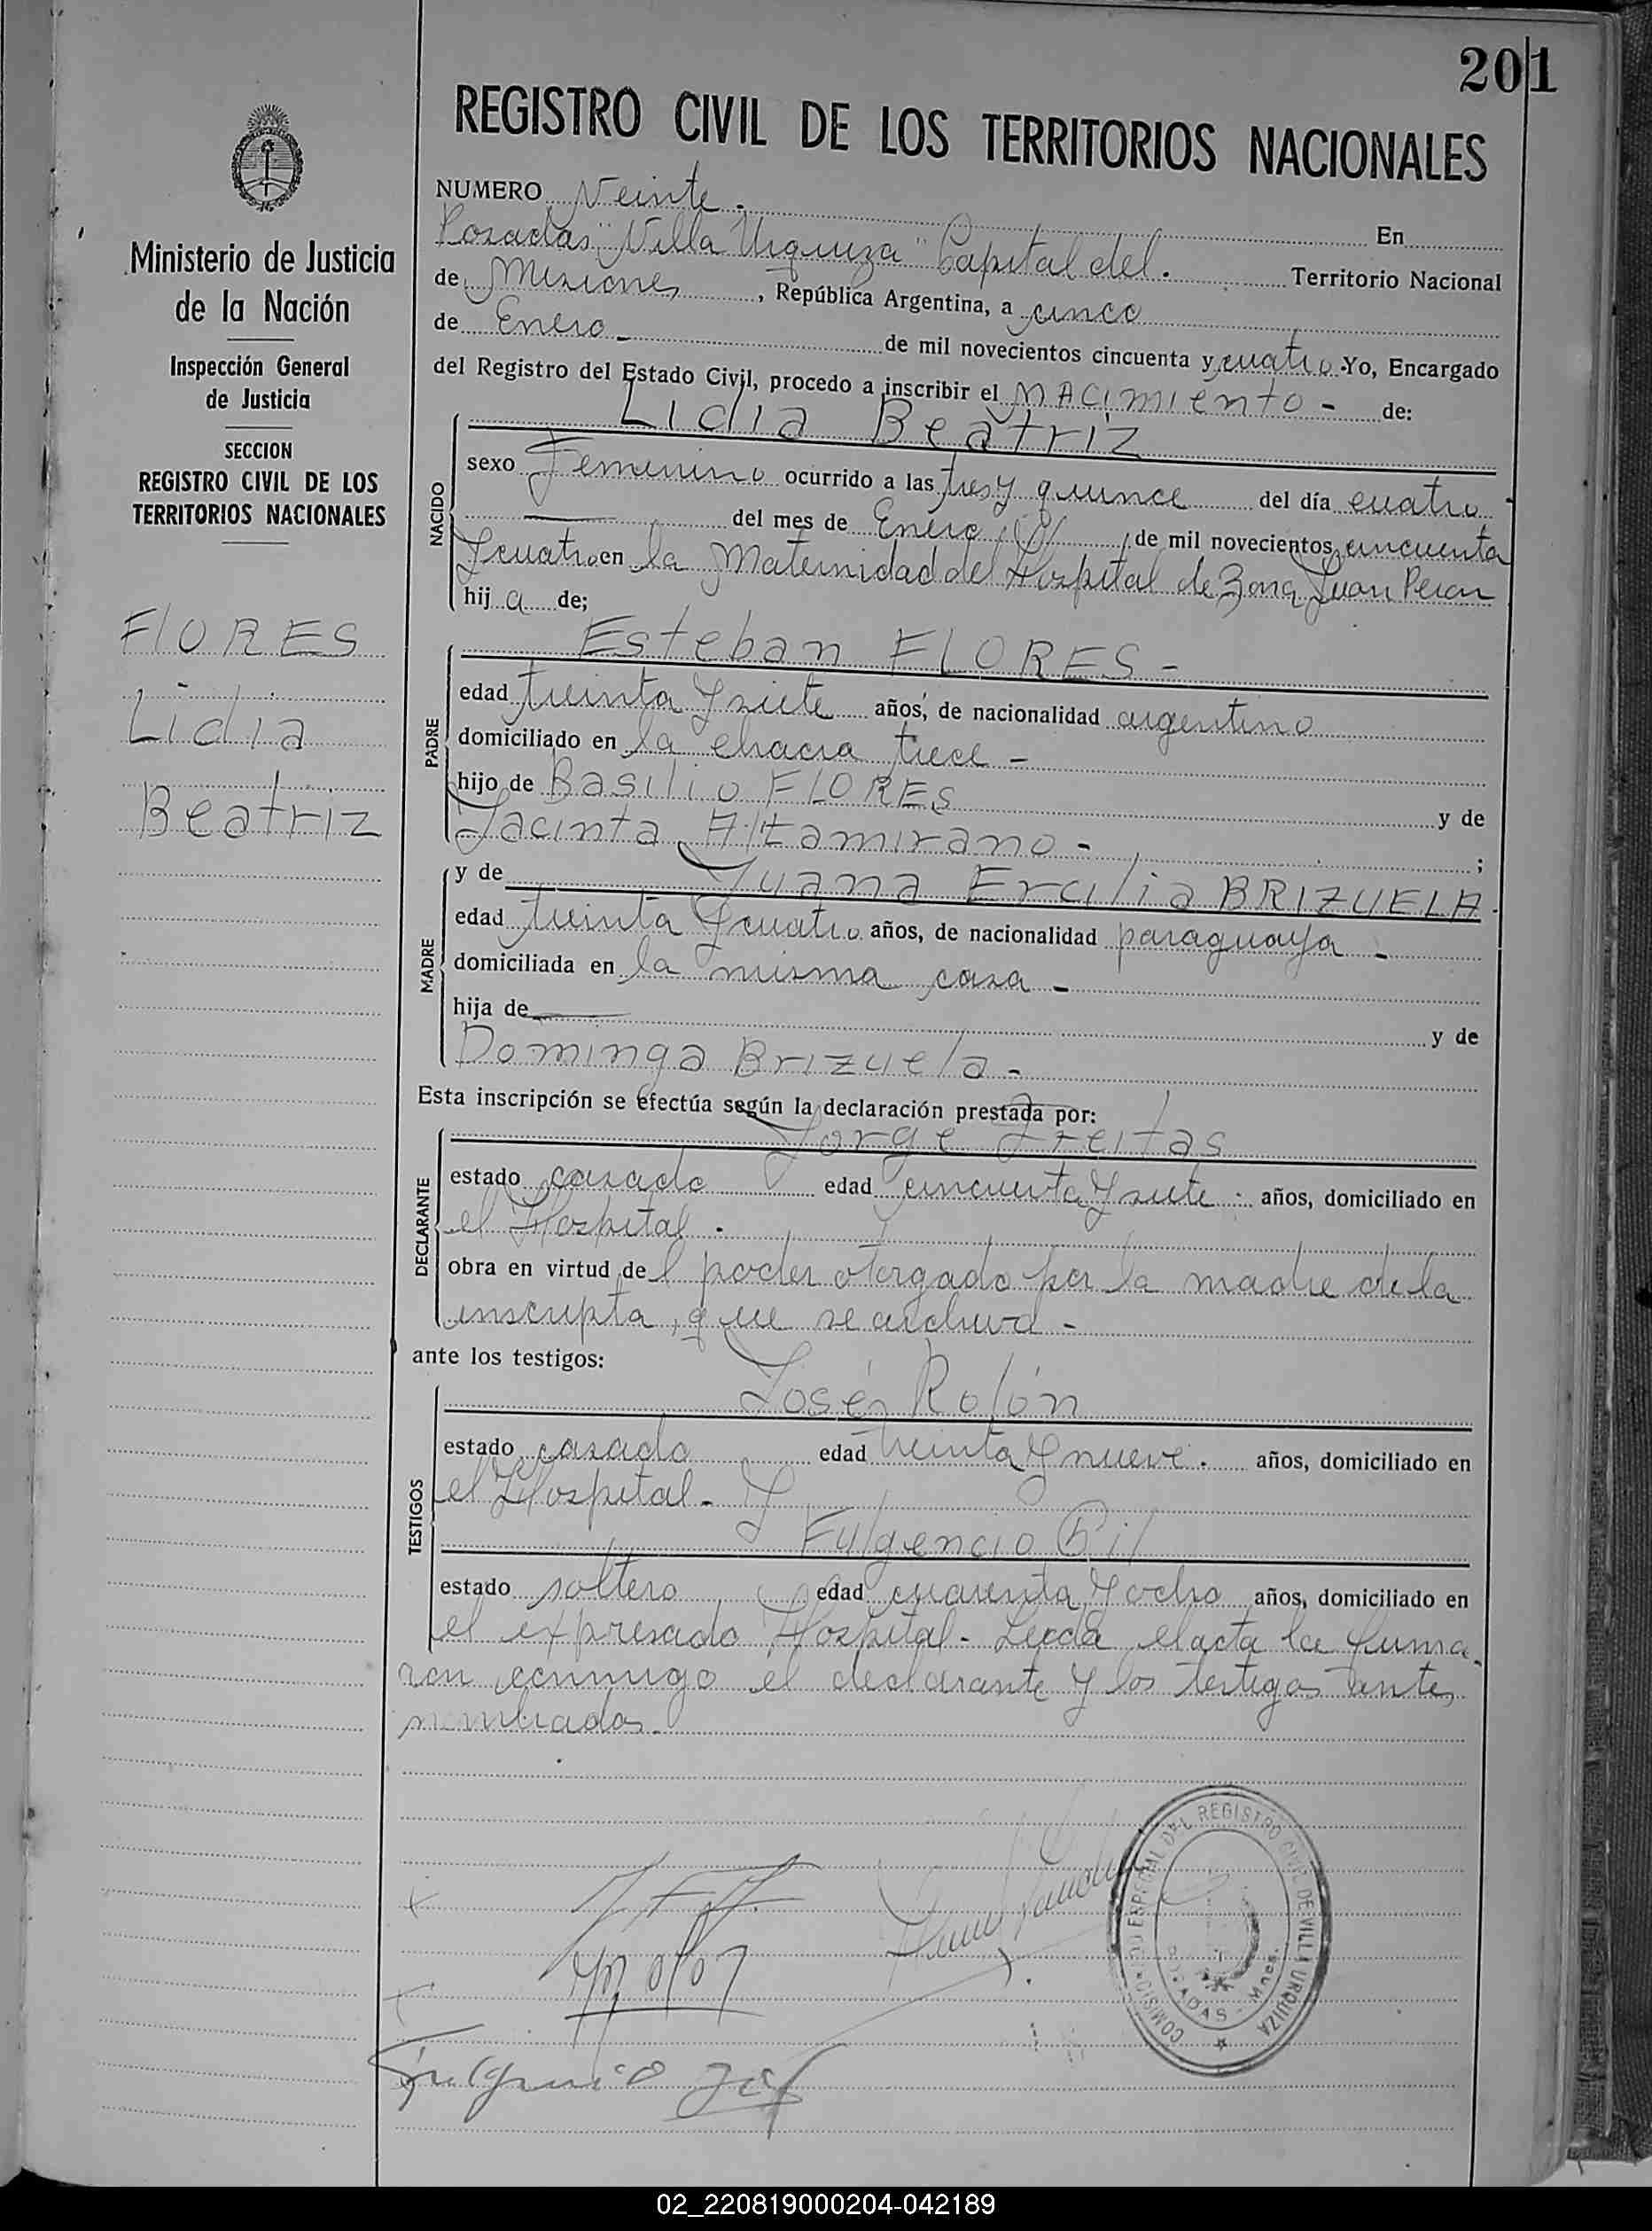 201
REGISTRO CIVIL DE LOS TERRITORIOS NACIONALES
Ministerio de Justicia
de la Nación
Inspección General
de Justicia
SECCION
REGISTRO CIVIL DE LOS
TERRITORIOS NACIONALES
FLORES
Lidia
Beatriz
NUMERO Veinte. En
Posadas "Villa Urquiza" Capital del. Territorio Nacional
de Misiones, República Argentina, a cinco
de Enero - de mil novecientos cincuenta y cuatro Yo, Encargado
del Registro del Estado Civil, procedo a inscribir el NACimiento - de:
Lidia Beatriz
NACIDO
sexo Femenino ocurrido a las tres y quince del día cuatro
del mes de Enero de mil novecientos cincuenta
y cuatro en la Maternidad del Hospital de Zona Juan Peron
hija de;
Esteban FLORES -
PADRE
edad treinta y siete años, de nacionalidad argentino
domiciliado en la chacra trece -
hijo de Basilio FLORES y de
Jacinta Altamirano - ;
MADRE
y de Juana Ercilia BRIZUELA.
edad treinta y cuatro años, de nacionalidad paraguaya -
domiciliada en la misma casa -
hija de y de
Dominga Brizuela -
Esta inscripción se efectúa según la declaración prestada por:
Jorge Freitas
DECLARANTE
estado casado edad cincuenta y siete - años, domiciliado en
el Hospital.
obra en virtud del poder otorgado por la madre de la
inscripta, que se archiva -
ante los testigos:
José Rolón
TESTIGOS
estado casado edad treinta y nueve. años, domiciliado en
el Hospital - y
Fulgencio Gil
estado soltero edad cuarenta y ocho años, domiciliado en
el expresado Hospital - Leida el acta la firma-
ron conmigo el declarante y los testigos antes
nombrados.
COMISIONADO ESPECIAL DEL REGISTRO CIVIL DE VILLA URQUIZA
POSADAS - Mnes.
Fulgencio Gil
02_220819000204-042189